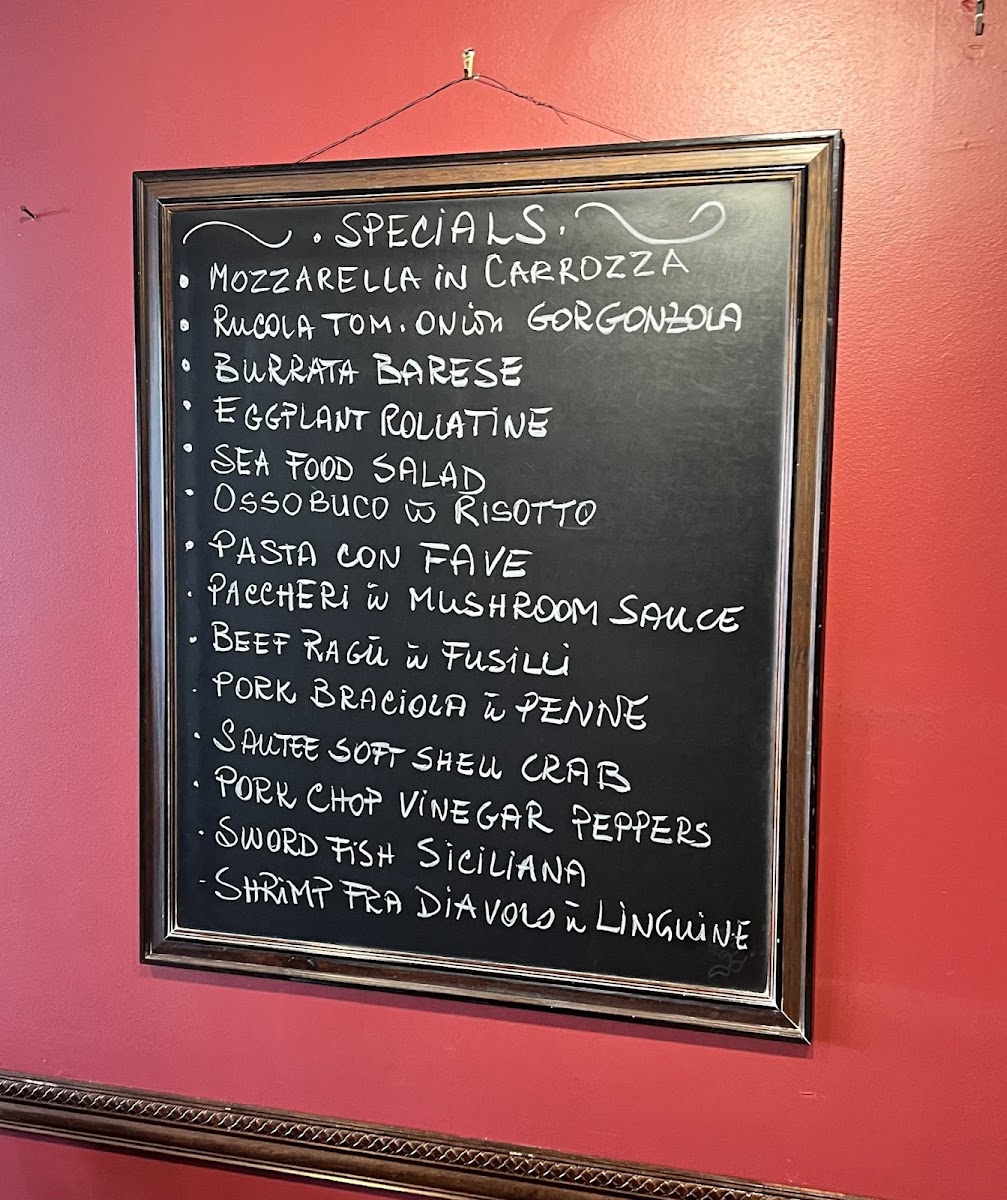 . SPECIALS.
• MOZZARELLA IN CARROZZA
• RUCOLA TOM. ONION GORGONZOLA
• BURRATA BARESE
• EGGPLANT ROLLATINE
• SEA FOOD SALAD
• OSSOBUCO W RISOTTO
• PASTA CON FAVE
• PACCHERI W MUSHROOM SAUCE
• BEEF RAGŪ W FUSILLI
• PORK BRACIOLA W PENNE
• SAUTEE SOFT SHELL CRAB
• PORK CHOP VINEGAR PEPPERS
• SWORD FISH SICILIANA
- SHRIMP FRA DIAVOLO W LINGUINE